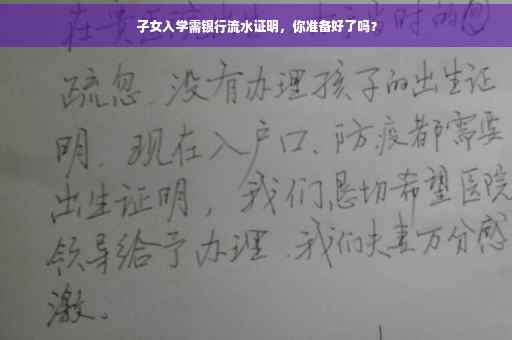 子女入学需银行流水证明，你准备好了吗？
疏忽、没有办理孩子的出生证
明、现在入户口、防疫都需要
出生证明，我们恳切希望医院
领导给予办理、我们夫妻万分感
激。